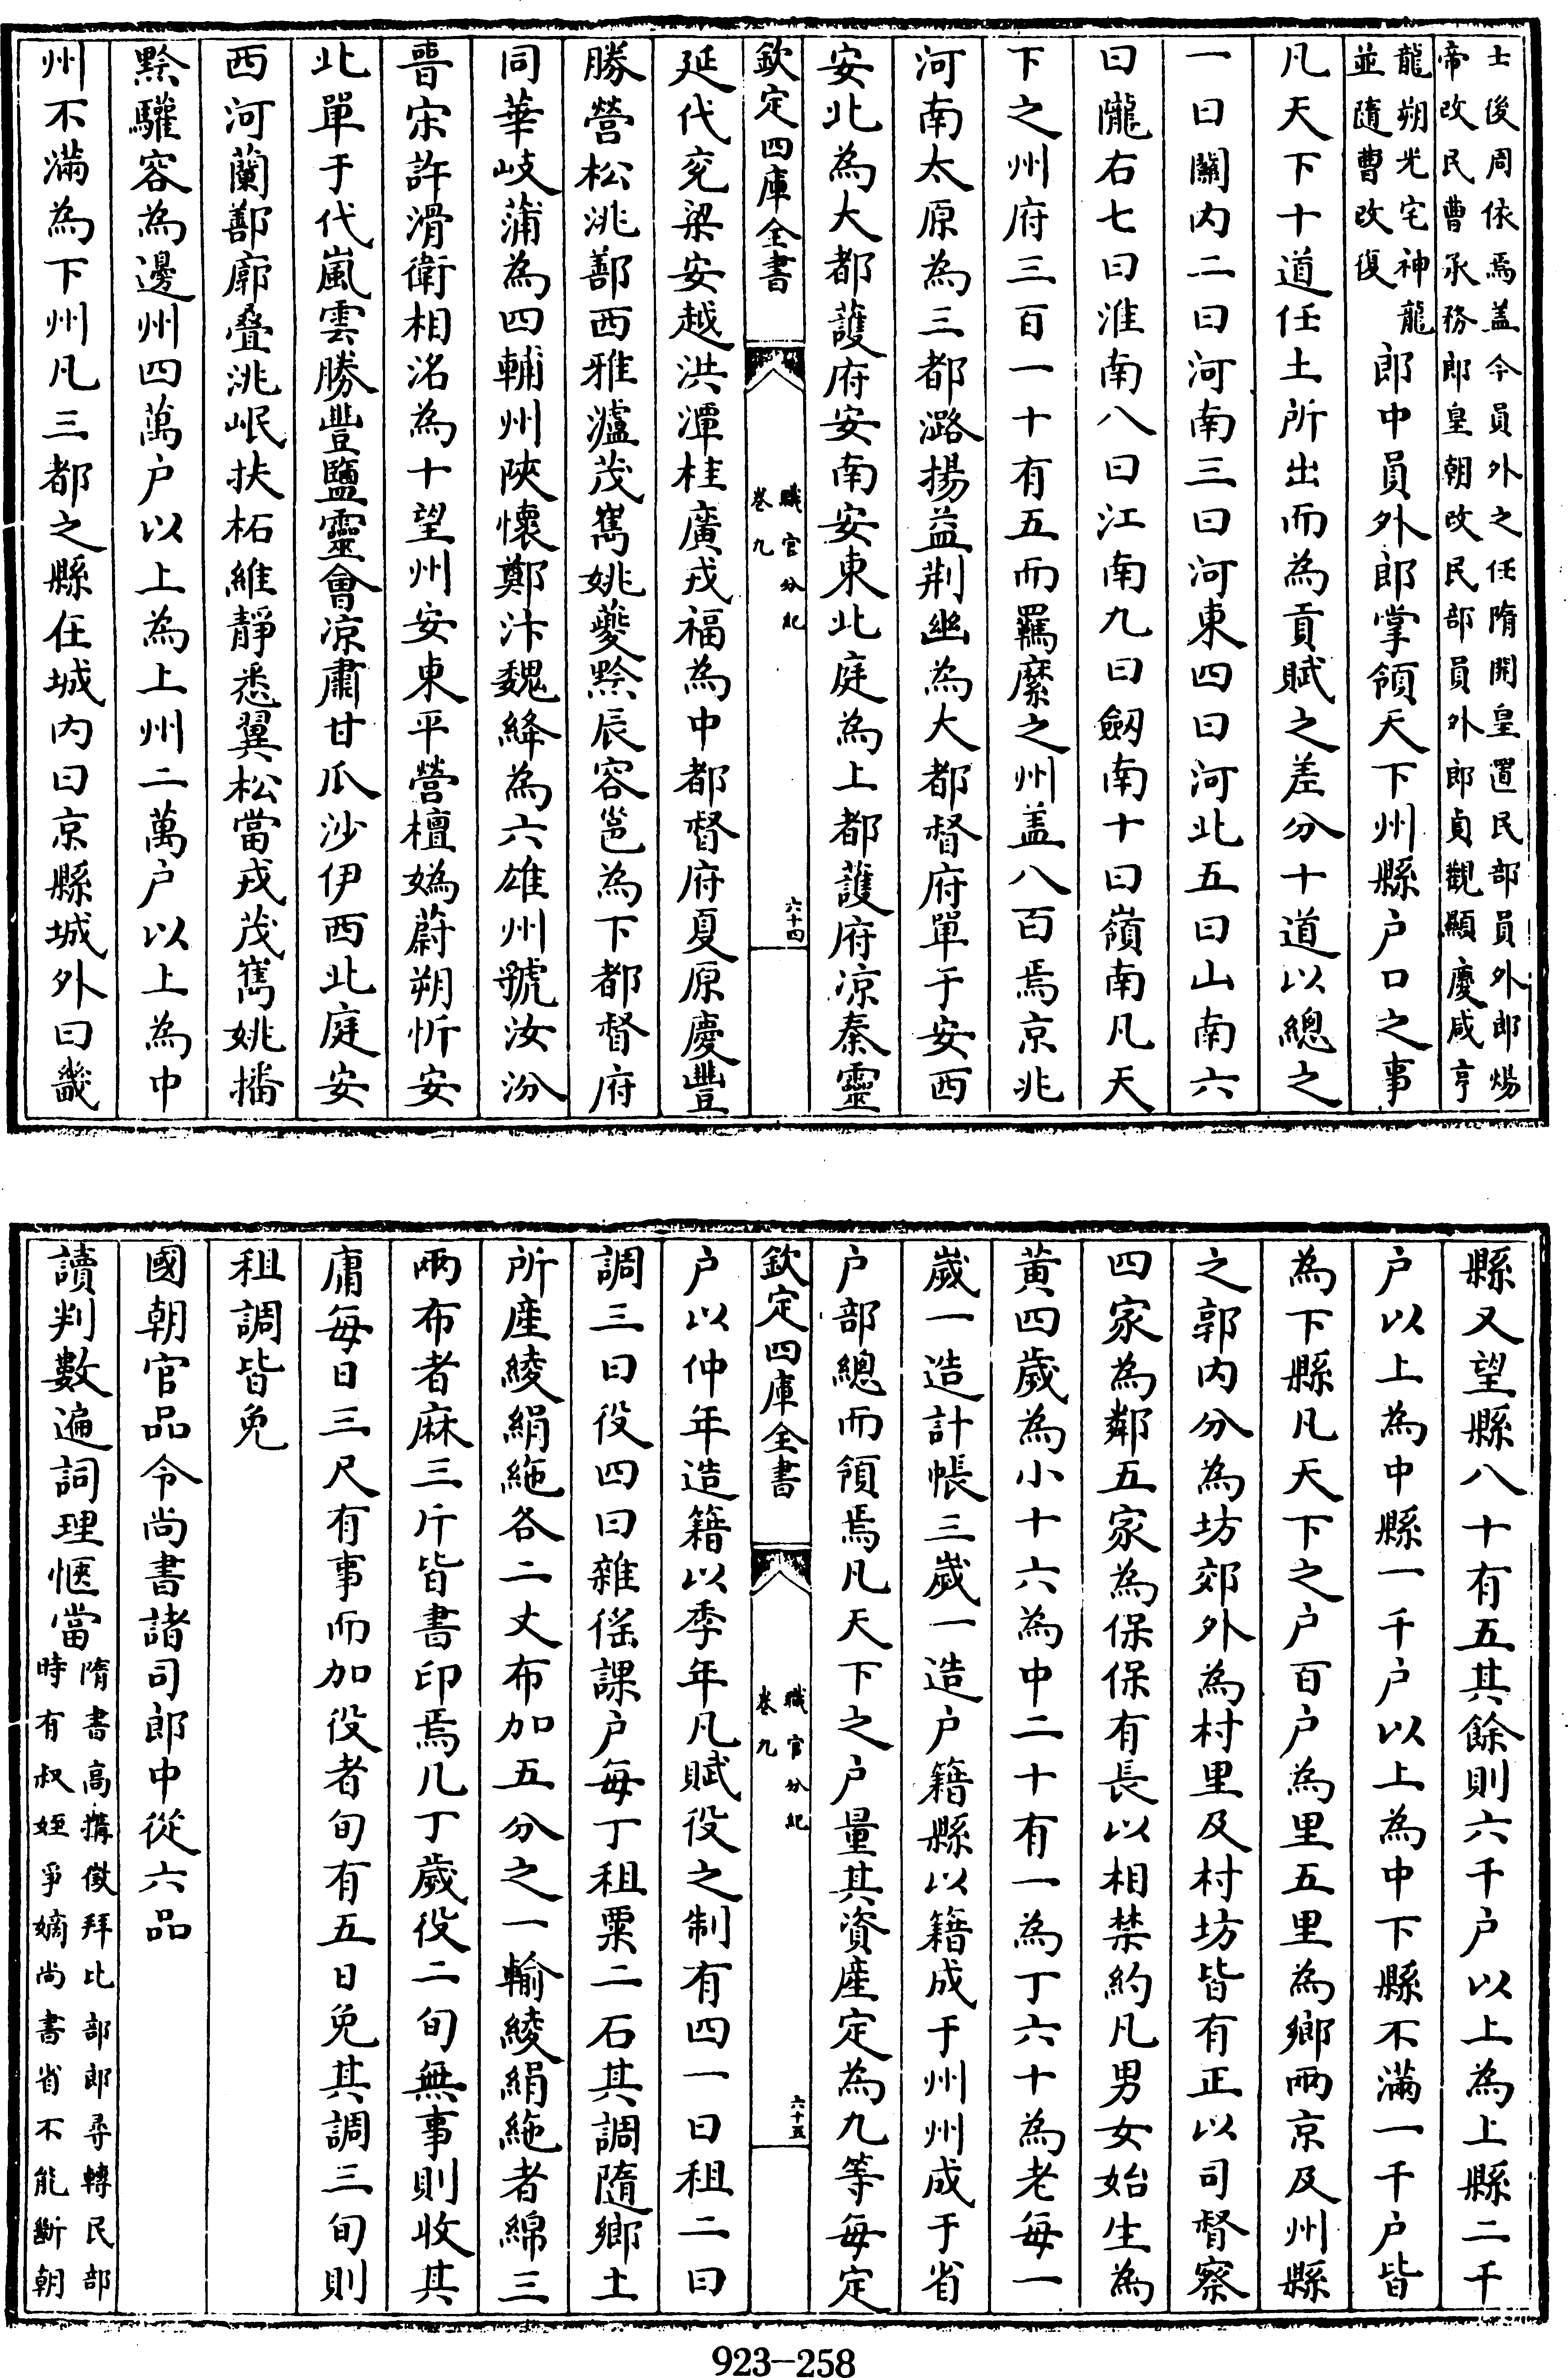 士後周依焉盖今員外之任隋開皇置民部員外郎煬
帝改民曹承務郎皇朝改民部員外郎貞觀顯慶咸亨
龍朔光宅神龍
並隨曹改復
郎中員外郎掌領天下州縣户口之事
凡天下十道任土所出而為貢賦之差分十道以總之
一曰關内二曰河南三曰河東四曰河北五曰山南六
曰隴右七曰淮南八曰江南九曰劔南十曰嶺南凡天
下之州府三百一十有五而羈縻之州盖八百焉京兆
河南太原為三都潞揚益荆幽為大都督府單于安西
安北為大都護府安南安東北庭為上都護府凉秦靈
欽定四庫全書
職官分紀
卷九
六十四
延代兖梁安越洪潭桂廣戎福為中都督府夏原慶豐
勝營松洮鄯西雅瀘茂嶲姚夔黔辰容邕為下都督府
同華岐蒲為四輔州陝懷鄭汴魏絳為六雄州虢汝汾
晉宋許滑衛相洺為十望州安東平營檀媯蔚朔忻安
北單于代嵐雲勝豐鹽靈會凉肅甘瓜沙伊西北庭安
西河蘭鄯廓叠洮岷扶柘維靜悉翼松當戎茂嶲姚播
黔驩容為邊州四萬户以上為上州二萬户以上為中
州不滿為下州凡三都之縣在城内曰京縣城外曰畿
縣又望縣八十有五其餘則六千户以上為上縣二千
户以上為中縣一千户以上為中下縣不滿一千户皆
為下縣凡天下之户百户為里五里為鄉兩京及州縣
之郭内分為坊郊外為村里及村坊皆有正以司督察
四家為鄰五家為保保有長以相禁約凡男女始生為
黄四歲為小十六為中二十有一為丁六十為老每一
歲一造計帳三歲一造户籍縣以籍成于州州成于省
户部總而領焉凡天下之户量其資産定為九等每定
欽定四庫全書
職官分紀
卷九
六十五
户以仲年造籍以季年凡賦役之制有四一曰租二曰
調三曰役四曰雜徭課户每丁租粟二石其調隨鄉土
所産綾絹絁各二丈布加五分之一輸綾絹絁者綿三
兩布者麻三斤皆書印焉凡丁歲役二旬無事則收其
庸每日三尺有事而加役者旬有五日免其調三旬則
租調皆免
國朝官品令尚書諸司郎中從六品
讀判數遍詞理愜當
隋書高構徵拜比部郎尋轉民部
時有叔姪爭嫡尚書省不能斷朝
923-258